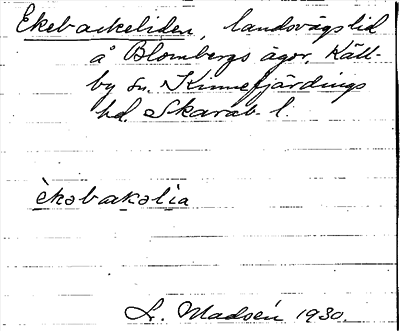 Ekebackeliden, landsvägslid
å Blombergs ägor, Käll-
by sn. Kinnefjärdings
hd. Skarab. l.
èkəbakəlìa
Madsén 1930.